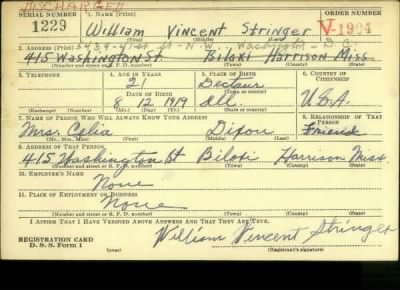 DISCHARGED
SERIAL NUMBER 1. NAME (Print) ORDER NUMBER
1229 William Vincent Stringer V-1904
(First) (Middle) (Last)
2. ADDRESS (Print) 3439-41st St-N.W. Washington-D.C.
415 Washington St. Biloxi Harrison Miss.
(Number and street or R. F. D. number) (Town) (County) (State)
3. TELEPHONE 4. AGE IN YEARS 5. PLACE OF BIRTH 6. COUNTRY OF CITIZENSHIP
21 Decatur
DATE OF BIRTH
8 12 1919 Ill. U.S.A.
(Exchange) (Number) (Mo.) (Day) (Yr.) (State or country)
7. NAME OF PERSON WHO WILL ALWAYS KNOW YOUR ADDRESS 8. RELATIONSHIP OF THAT PERSON
Mrs. Celia Dixon Friend
(Mr., Mrs., Miss) (First) (Middle) (Last)
9. ADDRESS OF THAT PERSON
415 Washington St Biloxi Harrison Miss.
(Number and street or R. F. D. number) (Town) (County) (State)
10. EMPLOYER'S NAME
None
11. PLACE OF EMPLOYMENT OR BUSINESS
None
(Number and street or R. F. D. number) (Town) (County) (State)
I AFFIRM THAT I HAVE VERIFIED ABOVE ANSWERS AND THAT THEY ARE TRUE.
REGISTRATION CARD
D. S. S. Form 1 William Vincent Stringer
(Registrant's signature)